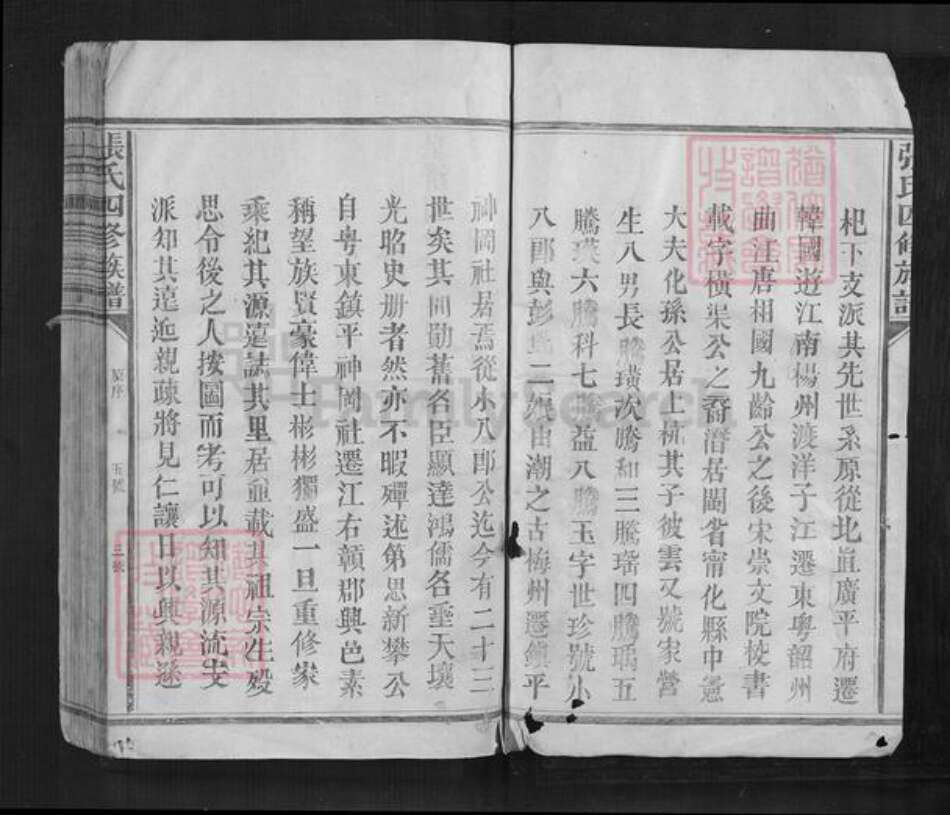 張氏四修族譜
杞下支派其先世系原從北直廣平府遷
韓國遊江南楊州渡洋子江遷東粵韶州
曲江唐相國九齡公之後宋崇文院校書
載字橫渠公之裔潛居閩省甯化縣中憲
大夫化孫公居上杭其子彼雲又號宋營
生八男長騰璜次騰和三騰瑤四騰瑀五
騰瑛六騰科七騰益八騰玉字世珍號小
八郎與彭 二娘由潮之古梅州遷鎮平
神岡社居焉從小八郎公迄今有二十三
世矣其間勛舊各臣顯達鴻儒各垂天壤
光昭史册者然亦不暇殫述第思新攀公
自粵東鎮平神岡社遷江右贛郡興邑素
稱望族賢豪偉士彬彬獨盛一旦重修家
乘紀其源遠誌其里居並載其祖宗生殁
思令後之人按圖而考可以知其源流支
派知其遠近親疎將見仁讓日以興親遜
張氏四修族譜
原序
五號
三號
FamilySearch